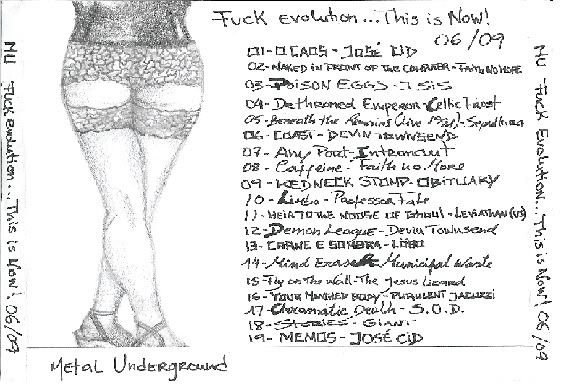 NU Fuck Evolution...This is Now! 06/09
Fuck Evolution...This is Now!
06/09
01-O CAOS - José CID
02-NAKED IN FRONT OF THE COMPUTER-FAITH NO MORE
03-POISON EGGS-ISIS
04-Dethroned Emperor-Celtic Frost
05-Beneath the Remains (live)-Sepultura
06-COAST-DEVIN TOWNSEND
07-Any Port-Intronaut
08-Caffeine-Faith no More
09-REDNECK STOMP-OBITUARY
10-Limbo-Professor Fate
11-HEIR TO THE NOOSE OF GHOUL-LEVIATHAN (US)
12-Demon League-Devin Townsend
13-CARNE E SOMBRA-LOBO
14-Mind Eraser-Municipal Waste
15-Fly on the Wall-The Jesus Lizard
16-YOUR MANGLED BODY-PURULENT JACUZZI
17-Chromatic Death-S.O.D.
18-STORIES-Giant
19-MEMOS-JOSÉ CID
Metal Underground
NU Fuck Evolution...This is Now! 06/09